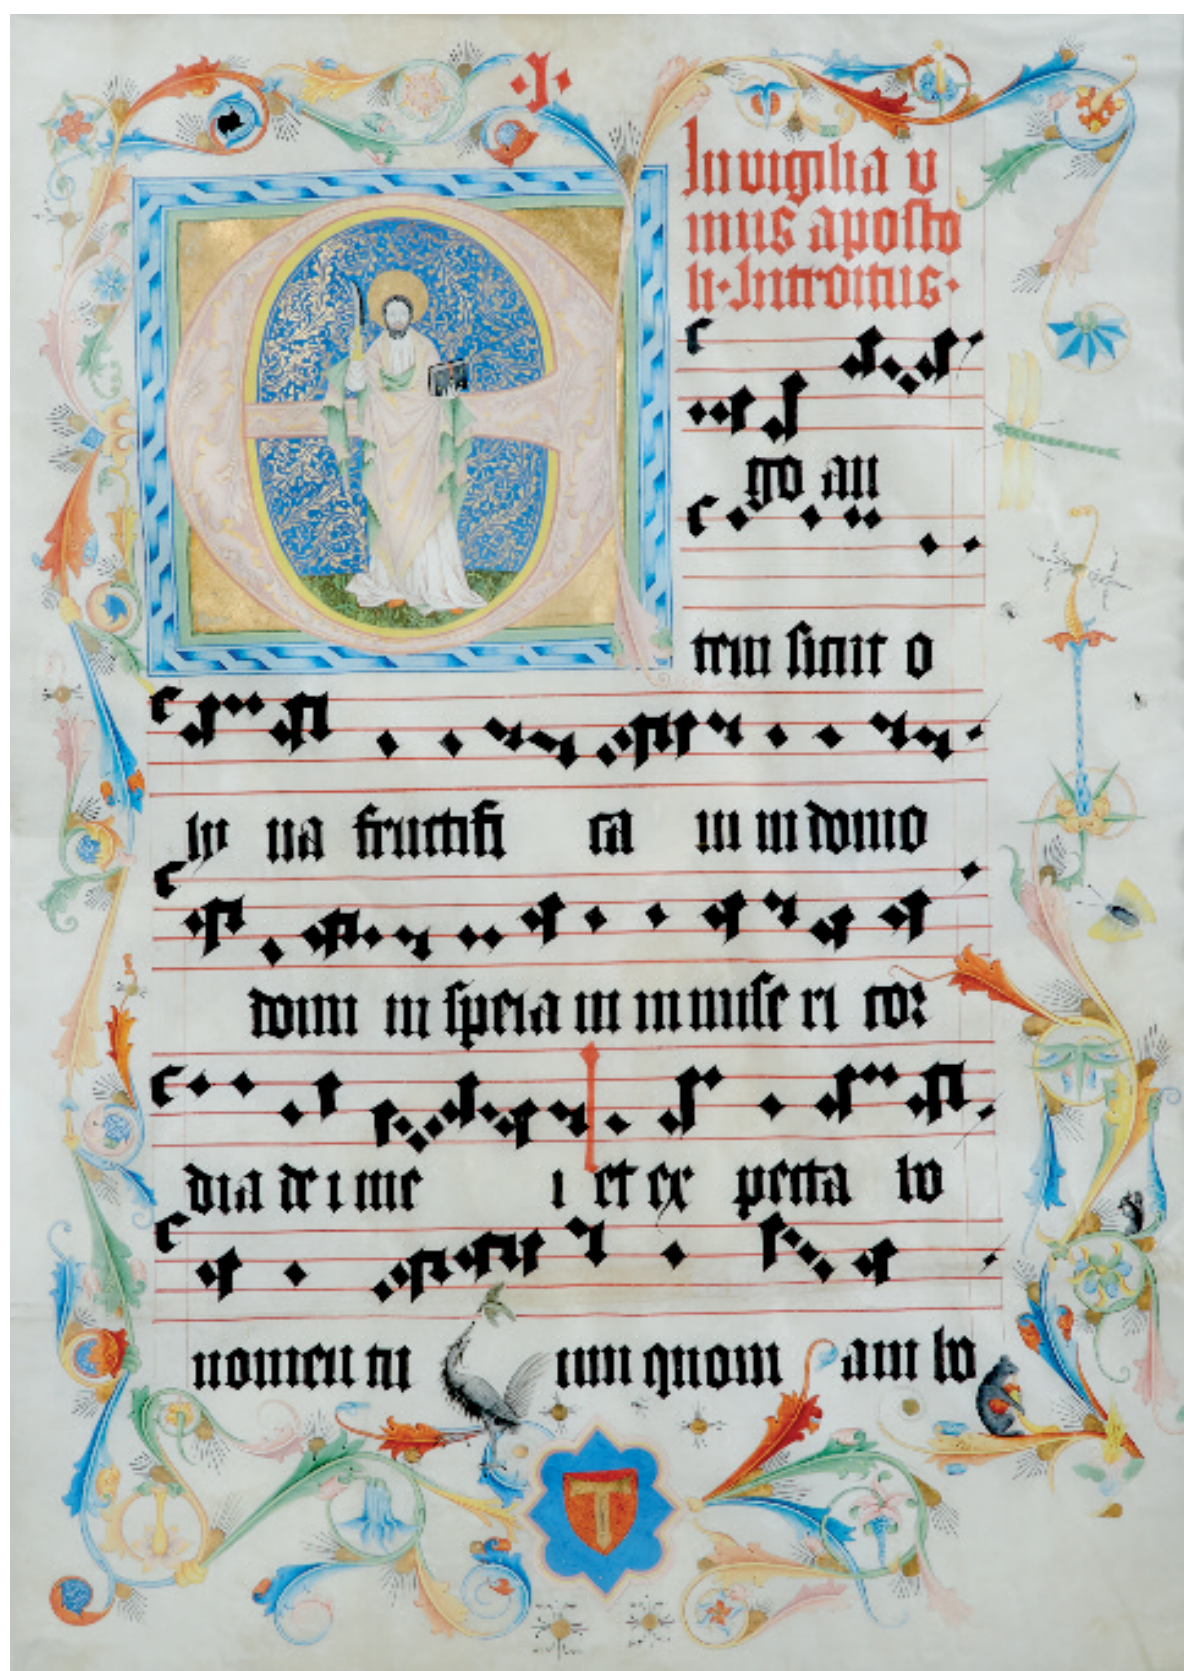 ·I·
In vigilia v
nius aposto
li·Introitus·
E
go au
tem sicut o
ly ua fructifi ca ui in domo
domi ni speraui in mise ri cor
dia de i me i et ex pecta bo
nomen tu um quoni am bo
T